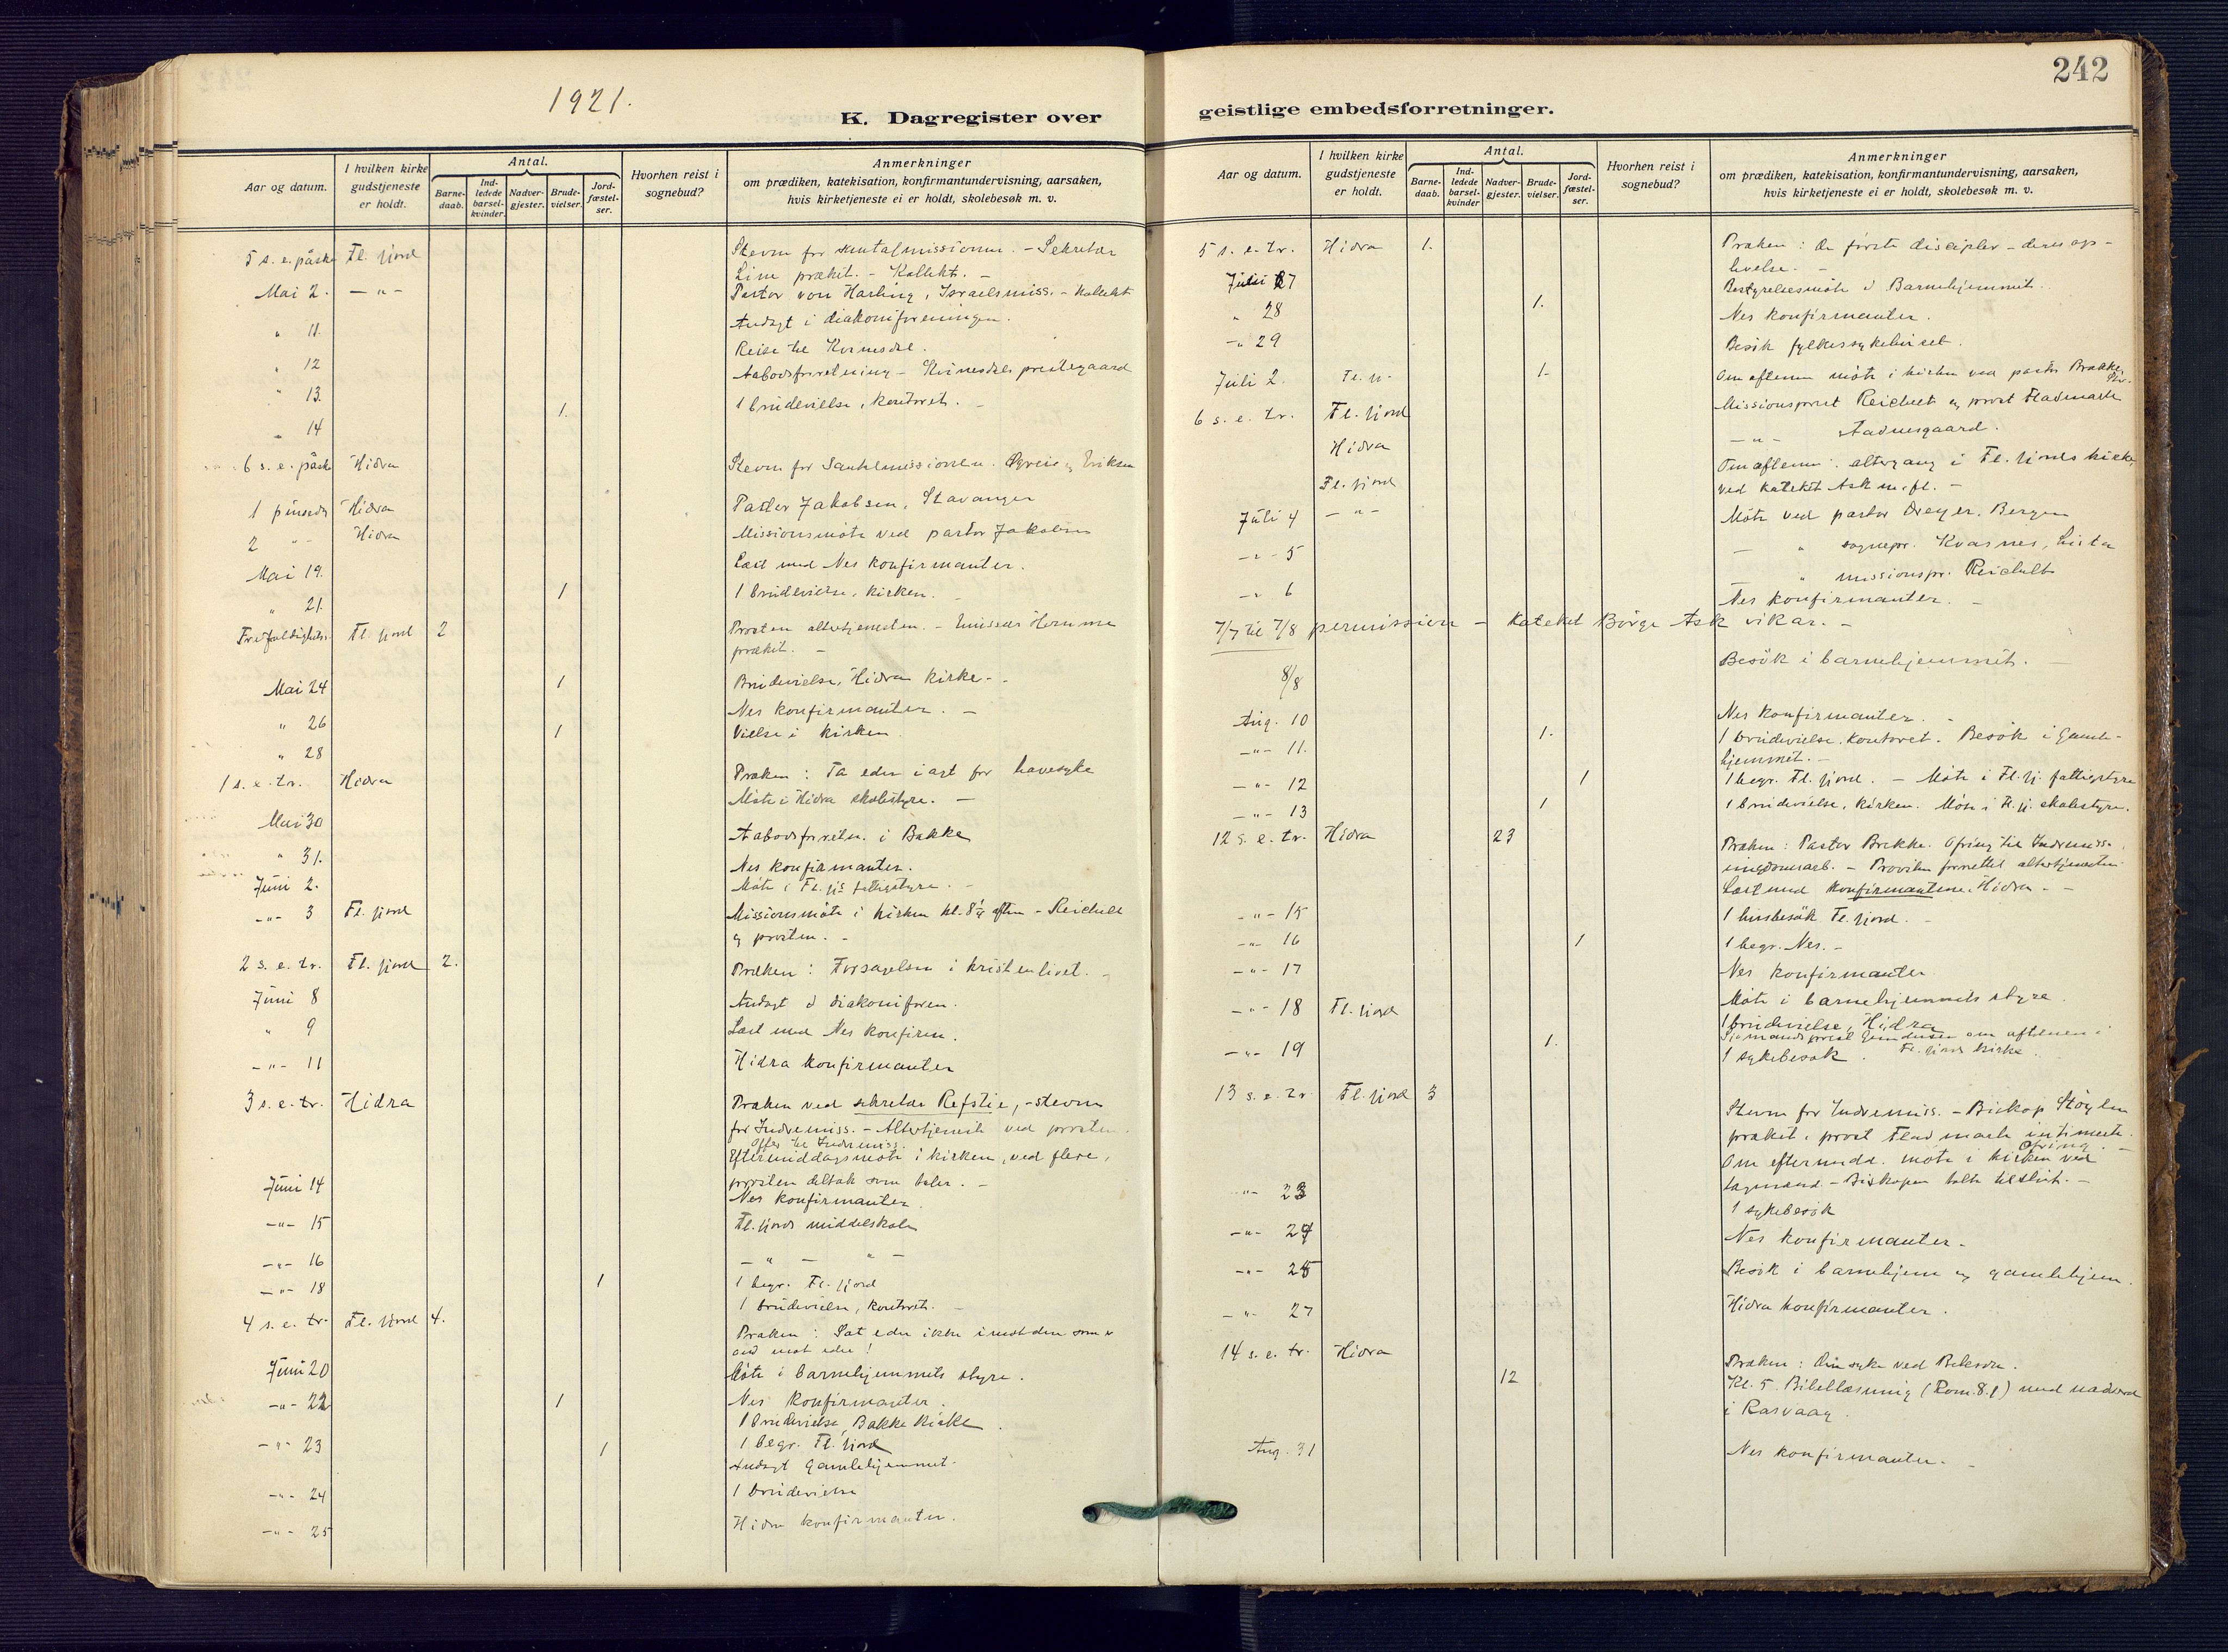 242
1921.
K. Dagregister over
geistlige embedsforretninger.
Aar og datum.
I hvilken kirke gudstjeneste er holdt.
Antal.
Barne-daab.
Ind-ledede barsel-kvinder.
Nadver-gjester.
Brude-vielser.
Jord-fæstel-ser.
Hvorhen reist i sognebud?
Anmerkninger
om prædiken, katekisation, konfirmantundervisning, aarsaken,
hvis kirketjeneste ei er holdt, skolebesøk m. v.
5 s. e. påske Fl. fjord Stevne for santalmissionen. - Sekretær
Line prækit. - Kollekt. -
Mai 2. - " - Pastor von Harling, Israelsmiss. - Kollekt
" 11. Andagt i diakoniforeningen.
Reise til Kvinesdal.
" 12 Aabodsforretning - Kvinesdals prestegaard
" 13. 1 brudevielse, kontoret. -
1.
" 14
6 s. e. påske Hidra Stevne for Santalmissionen. og Eriksen
1 pinsedag Hidra Pastor Jakobsen, Stavanger
2 " - Hidra Missionsmöte ved pastor Jakobsen
Mai 19. Læst med Nes konfirmanter.
" 21. 1 1 brudevielse, kirken. -
Trefoldighets. Fl. fjord 2 Prosten altertjenesten. - Emissær Homme
prækit. -
Mai 24 1 Brudevielse, Hidra kirke. -
Nes konfirmanter. -
" 26 1 Vielse i kirken
" 28
1 s. e. tr. Hidra Præken: Ta eder i agt for havesyke
Möte i Hidra skolestyre. -
Mai 30 Aabodsforretn. i Bakke
" 31. Nes konfirmanter.
Juni 2. Möte i Fl. fjs fattigstyre. -
- " - 3 Fl. fjord Missionsmöte i kirken kl. 8 1/2 aften - Reichelt
og prosten. -
2 s. e. tr. Fl. fjord 2. Præken: Forsagelsen i kristenlivet. -
Juni 8 Andagt i diakoniforen.
" 9 Læst med Nes konfirm.
- " - 11 Hidra konfirmanter
3 s. e. tr. Hidra Præken ved sekretær Refstie, - stevne
for Indremiss. - Altertjeneste ved prosten.
Offer til Indremiss.
Eftermiddagsmöte i kirken, ved flere,
prosten deltok som taler. -
Juni 14 Nes konfirmanter.
- " - 15 Fl. fjords middelskole
- " - 16 - " - " -
- " - 18 1 1 begr. Fl. fjord
1 brudevielse, kontoret. -
4 s. e. tr. Fl. fjord 4. Præken: Sæt eder ikke imot den som er
ond mot eder!
Juni 20 Möte i barnehjemmets styre.
- " - 22 1 Nes konfirmanter.
1 brudevielse, Bakke kirke.
- " - 23 1 1 begr. Fl. fjord
Andagt Gamlehjemmet.
- " - 24 1 brudevielse
- " - 25 Hidra konfirmanter.
Aar og datum.
I hvilken kirke gudstjeneste er holdt.
Antal.
Barne-daab.
Ind-ledede barsel-kvinder
Nadver-gjester.
Brude-vielser.
Jord-fæstel-ser.
Hvorhen reist i sognebud?
Anmerkninger
om prædiken, katekisation, konfirmantundervisning, aarsaken,
hvis kirketjeneste ei er holdt, skolebesøk m. v.
5 s. e. tr. Hidra 1. Præken: De förste disciple - deres op-
levelse. -
27 Bestyrelsesmöte i Barnehjemmet.
" 28 1. Nes konfirmanter.
- " 29 Besök fylkessykehuset.
Juli 2. Fl. fj. 1. Om aftenen möte i kirken ved pastor Brække,
6 s. e. tr. Fl. fjord Missionsprest Reichelt og prost Fladmark
Hidra - " - Aadnesgaard.
Fl. fjord Om aftenen altergang i Fl. fjords kirke,
ved kateket Ask m. fl. -
Juli 4 - " - Möte ved pastor Dreyer, Bergen
- " - 5 - " sognepr. Kvasnes, Lista
- " missionspr. Reichelt
- " 6 Nes konfirmanter. -
7/7 til 7/8 permission - Kateket Börge Ask vikar. -
8/8 Besök i barnehjemmet. -
Aug. 10 Nes konfirmanter. -
- " - 11. 1. 1 brudevielse, kontoret. Besök i Gamle-
hjemmet. -
- " - 12 1 1 begr. Fl. fjord. - Möte i Fl. fj. fattigstyre
- " - 13 1 1 brudevielse, kirken. Möte i Fl. fj. skolestyre.
12 s. e. tr. Hidra 23 Præken: Pastor Brekke. Ofring til Indremiss.
ungdomsarb. - Prosten forrettet altertjenesten
Læst med konfirmantene, Hidra. -
- " - 15 1 husbesök Fl. fjord. -
- " - 16 1 1 begr. Nes. -
- " - 17 Nes konfirmanter
- " - 18 Fl. fjord Möte i barnehjemmets styre.
1 brudevielse, Hidra
Sjömandsprest om aftenen i
Fl. fjords kirke.
- " - 19 1. 1 sykebesök.
13 s. e. tr Fl. fjord 3 Stevne for Indremiss. - Biskop Stöylen
prækit, prost Fladmark intimerte.
Ofring. -
Om eftermidd. möte i kirken ved
lægmænd. - Biskopen talte tilslut. -
- " - 23 1 sykebesök
- " - 24 Nes konfirmanter.
- " - 25 Besök i barnehjem og gamlehjem.
- " - 27 Hidra konfirmanter.
14 s. e. tr. Hidra Præken: Den syke ved Betesda.
12 Kl. 5 Bibellæsning (Rom. 8.1) med nadverd
i Rasvaag.
Aug. 31 Nes konfirmanter. -